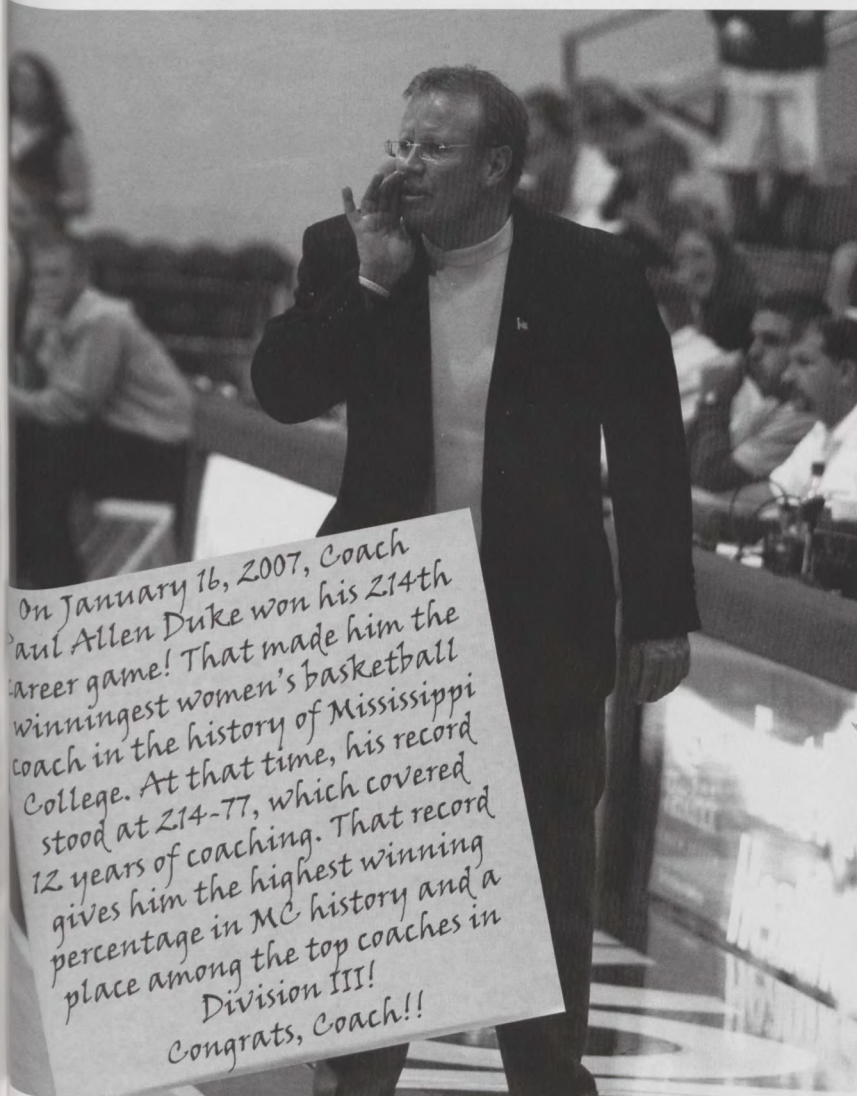 On January 16, 2007, Coach
Paul Allen Duke won his 214th
career game! That made him the
winningest women's basketball
coach in the history of Mississippi
College. At that time, his record
stood at 214-77, which covered
12 years of coaching. That record
gives him the highest winning
percentage in MC history and a
place among the top coaches in
Division III!
Congrats, Coach!!